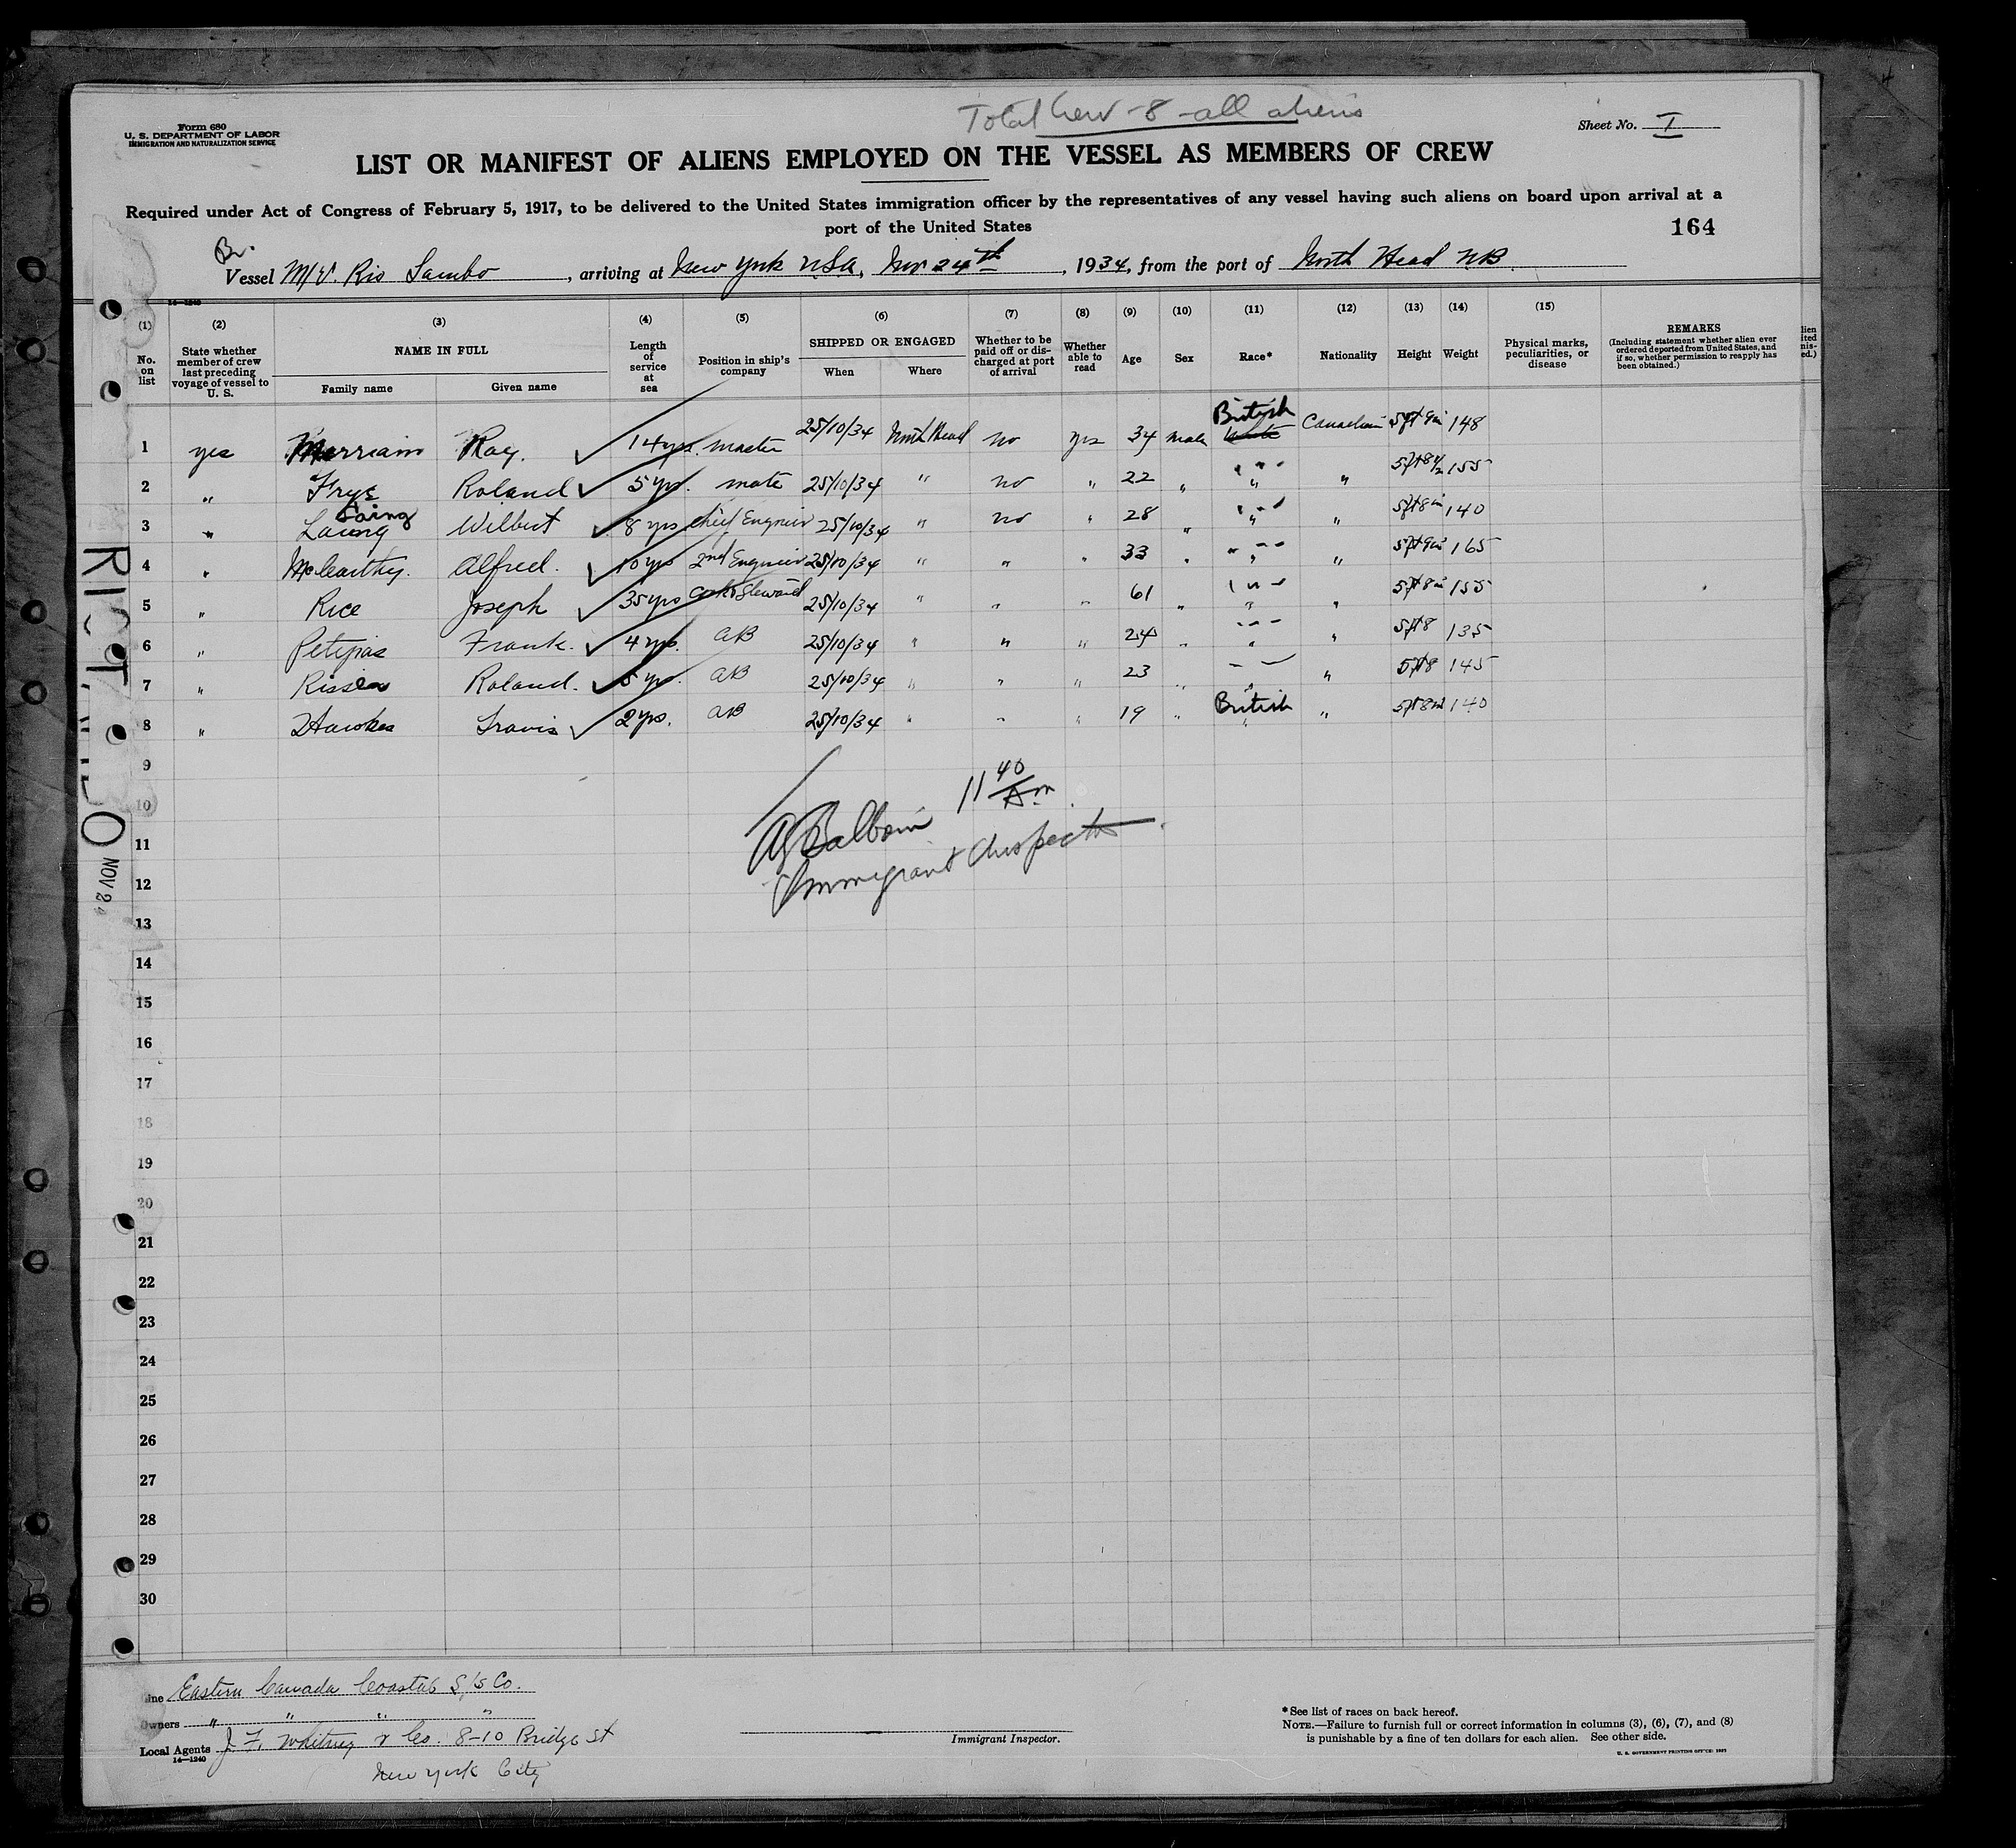 Total Crew - 8 - all aliens
Form 680
U. S. DEPARTMENT OF LABOR
IMMIGRATION AND NATURALIZATION SERVICE
Sheet No. I
LIST OR MANIFEST OF ALIENS EMPLOYED ON THE VESSEL AS MEMBERS OF CREW
Required under Act of Congress of February 5, 1917, to be delivered to the United States immigration officer by the representatives of any vessel having such aliens on board upon arrival at a
port of the United States
164
Br.
Vessel M/V. Rio Sambo, arriving at New York USA, Nov 24th, 1934, from the port of North Head N.B.
14—1240
(1) (2) (3) (4) (5) (6) (7) (8) (9) (10) (11) (12) (13) (14) (15)
No. on list
State whether member of crew last preceding voyage of vessel to U. S.
NAME IN FULL
Family name Given name
Length of service at sea
Position in ship's company
SHIPPED OR ENGAGED
When Where
Whether to be paid off or discharged at port of arrival
Whether able to read
Age
Sex
Race*
Nationality
Height
Weight
Physical marks, peculiarities, or disease
REMARKS
(Including statement whether alien ever ordered deported from United States, and if so, whether permission to reapply has been obtained.)
1 yes Merriam Ray. ✓ 14 yrs. master 25/10/34 North Head no yes 34 male British White Canadian 5ft 9in 148
2 " Frye Roland ✓ 5 yrs. mate 25/10/34 " no " 22 " " " 5ft 8 1/2 155
3 " Laing Wilbert ✓ 8 yrs chief Engineer 25/10/34 " no " 28 " " " 5ft 8in 140
4 " McCarthy. Alfred. ✓ 10 yrs 2nd Engineer 25/10/34 " " " 33 " " " 5ft 9in 165
5 " Rice Joseph ✓ 35 yrs cook & Steward 25/10/34 " " " 61 " " " 5ft 8in 155
6 " Petipas Frank. ✓ 4 yrs. AB 25/10/34 " " " 24 " " " 5ft 8 135
7 " Risser Roland. ✓ 5 yrs. AB 25/10/34 " " " 23 " " " 5ft 8 145
8 " Hawkes Travis ✓ 2 yrs. AB 25/10/34 " " " 19 " British " 5ft 8in 140
9
10
11
12
13
14
15
16
17
18
19
20
21
22
23
24
25
26
27
28
29
30
11 40 Am
Immigrant Inspector
NOV 24
Line Eastern Canada Coastal S/S Co.
Owners " " " "
Local Agents J. F. Whitney & Co. 8-10 Bridge St
14—1240
New York City
Immigrant Inspector.
*See list of races on back hereof.
NOTE.—Failure to furnish full or correct information in columns (3), (6), (7), and (8)
is punishable by a fine of ten dollars for each alien. See other side.